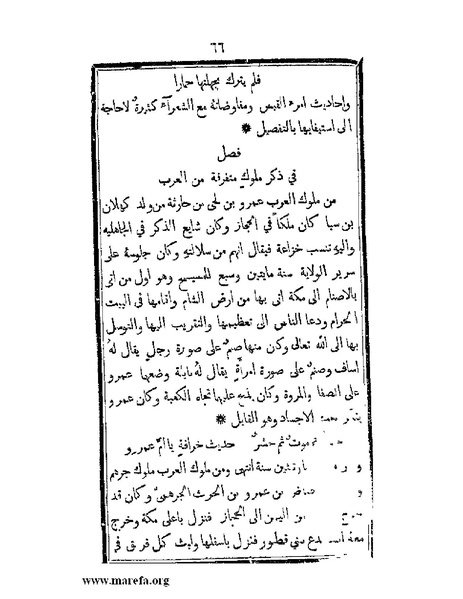 ٦٦
فلم يترك بجهلتها حمارا
واحاديث امرء القيس ومفاوضاته مع الشعرآء كثيرة لاحاجة
الى استيفايها بالتفصيل *
فصل
في ذكر ملوك متفرقة من العرب
من ملوك العرب عمرو بن لحى بن حارثة من ولد كيلان
بن سبا كان ملكًا في الحجاز وكان شايع الذكر في الجاهليه
واليه تنسب خزاعة فيقال انهم من سلالته وكان جلوسه على
سرير الولاية سنة مايتين وسبع للمسيح وهو اول من اتى
بالاصنام الى مكة اتى بها من ارض الشام واقامها في البيت
الحرام ودعا الناس الى تعظيمها والتقريب اليها والتوسل
بها الى الله تعالى وكان منها صنم على صورة رجل يقال له
اساف وصنم على صورة امرأة يقال له نايلة وضعها عمرو
على الصفا والمروة وكان يذبح عليها تجاه الكعبة وكان عمرو
الاجساد وهو القايل *
موت ثم حشر حديث خرافة يا ام عمرو
سنة انتهى ومن ملوك العرب ملوك جرهم
بن عمرو بن الحرث الجرهمي وكان قد
من اليمن الى الحجاز فنزل باعلى مكة وخرج
معه بني قطور فنزل باسفلها ولبث كل فريق في
www.marefa.org